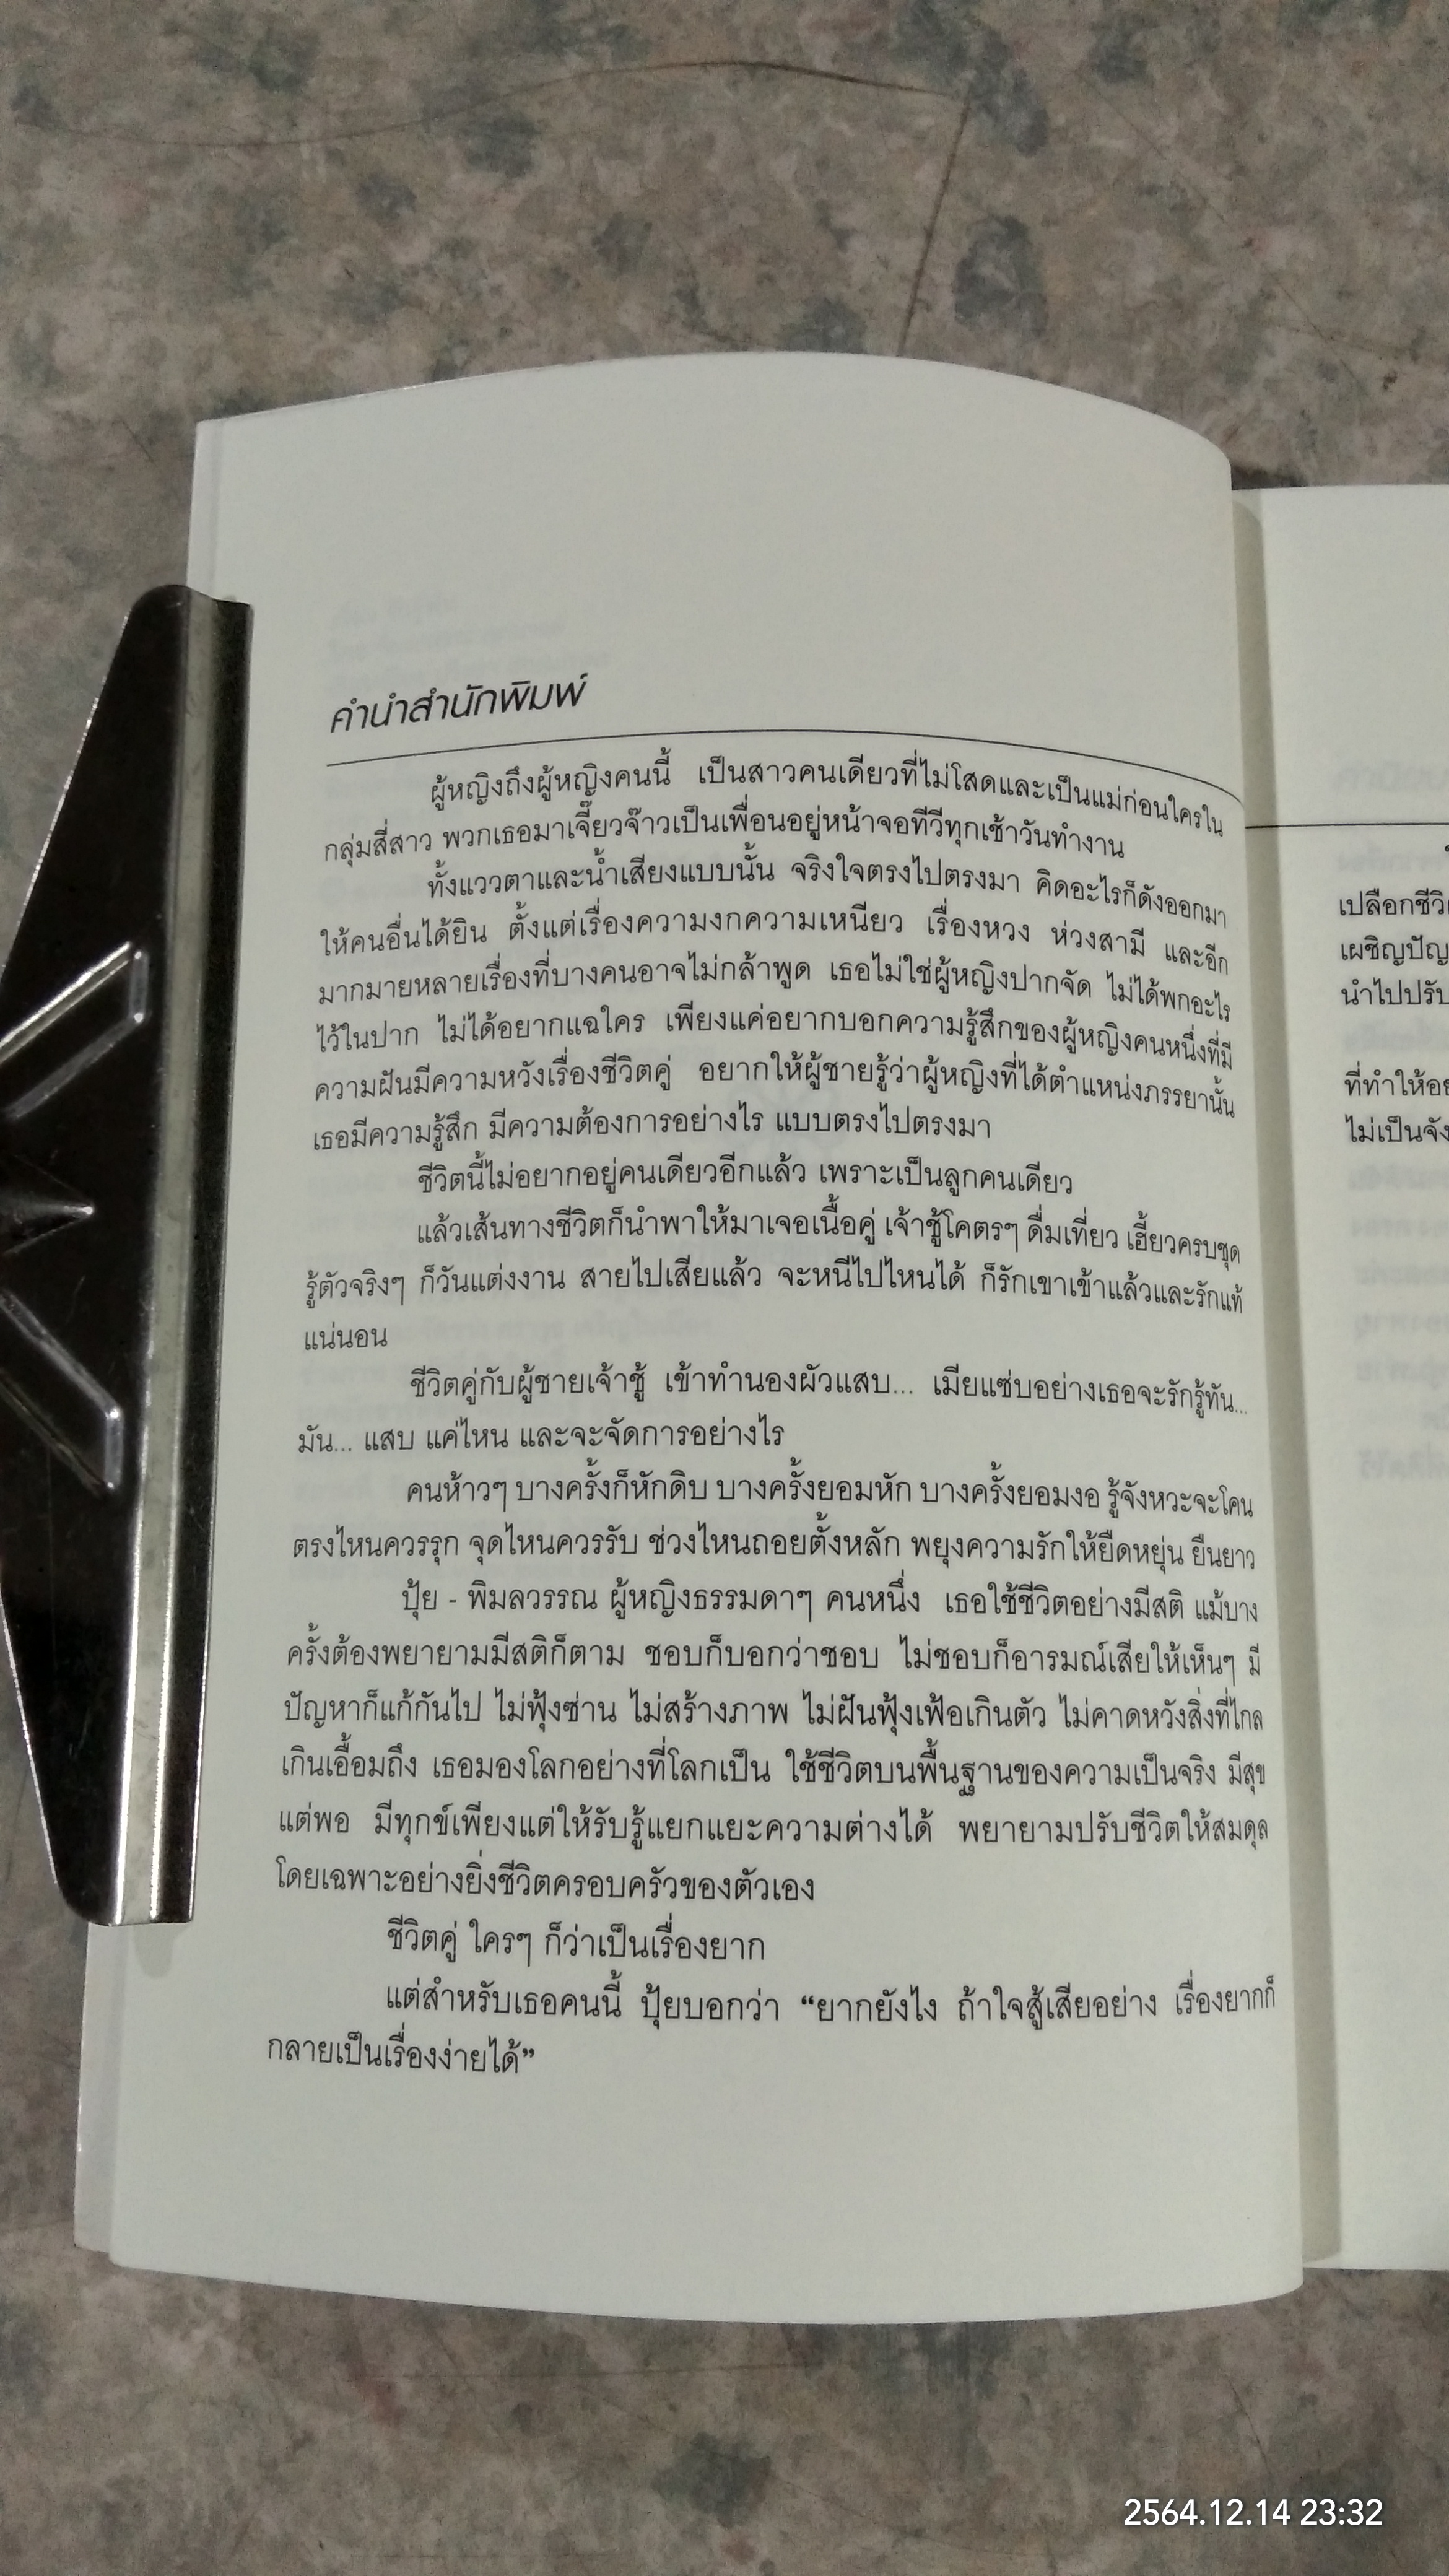 คำนำสำนักพิมพ์
ผู้หญิงถึงผู้หญิงคนนี้ เป็นสาวคนเดียวที่ไม่โสดและเป็นแม่ก่อนใครใน
กลุ่มสี่สาว พวกเธอมาเจี๊ยวจ๊าวเป็นเพื่อนอยู่หน้าจอทีวีทุกเช้าวันทำงาน
ทั้งแววตาและน้ำเสียงแบบนั้น จริงใจตรงไปตรงมา คิดอะไรก็ดังออกมา
ให้คนอื่นได้ยิน ตั้งแต่เรื่องความงกความเหนียว เรื่องหวง ห่วงสามี และอีก
มากมายหลายเรื่องที่บางคนอาจไม่กล้าพูด เธอไม่ใช่ผู้หญิงปากจัด ไม่ได้พกอะไร
ไว้ในปาก ไม่ได้อยากแฉใคร เพียงแค่อยากบอกความรู้สึกของผู้หญิงคนหนึ่งที่มี
ความฝันมีความหวังเรื่องชีวิตคู่ อยากให้ผู้ชายรู้ว่าผู้หญิงที่ได้ตำแหน่งภรรยานั้น
เธอมีความรู้สึก มีความต้องการอย่างไร แบบตรงไปตรงมา
ชีวิตนี้ไม่อยากอยู่คนเดียวอีกแล้ว เพราะเป็นลูกคนเดียว
แล้วเส้นทางชีวิตก็นำพาให้มาเจอเนื้อคู่ เจ้าชู้โคตรๆ ดื่มเที่ยว เฮี้ยวครบชุด
รู้ตัวจริงๆ ก็วันแต่งงาน สายไปเสียแล้ว จะหนีไปไหนได้ ก็รักเขาเข้าแล้วและรักแท้
แน่นอน
ชีวิตคู่กับผู้ชายเจ้าชู้ เข้าทำนองผัวแสบ... เมียแซ่บอย่างเธอจะรักรู้ทัน...
มัน... แสบ แค่ไหน และจะจัดการอย่างไร
คนห้าวๆ บางครั้งก็หักดิบ บางครั้งยอมหัก บางครั้งยอมงอ รู้จังหวะจะโคน
ตรงไหนควรรุก จุดไหนควรรับ ช่วงไหนถอยตั้งหลัก พยุงความรักให้ยืดหยุ่น ยืนยาว
ปุ้ย - พิมลวรรณ ผู้หญิงธรรมดาๆ คนหนึ่ง เธอใช้ชีวิตอย่างมีสติ แม้บาง
ครั้งต้องพยายามมีสติก็ตาม ชอบก็บอกว่าชอบ ไม่ชอบก็อารมณ์เสียให้เห็นๆ มี
ปัญหาก็แก้กันไป ไม่ฟุ้งซ่าน ไม่สร้างภาพ ไม่ฝันฟุ้งเฟ้อเกินตัว ไม่คาดหวังสิ่งที่ไกล
เกินเอื้อมถึง เธอมองโลกอย่างที่โลกเป็น ใช้ชีวิตบนพื้นฐานของความเป็นจริง มีสุข
แต่พอ มีทุกข์เพียงแต่ให้รับรู้แยกแยะความต่างได้ พยายามปรับชีวิตให้สมดุล
โดยเฉพาะอย่างยิ่งชีวิตครอบครัวของตัวเอง
ชีวิตคู่ ใครๆ ก็ว่าเป็นเรื่องยาก
แต่สำหรับเธอคนนี้ ปุ้ยบอกว่า “ยากยังไง ถ้าใจสู้เสียอย่าง เรื่องยากก็
กลายเป็นเรื่องง่ายได้”
เปลือกชีวิ
เผชิญปัญ
นำไปปรับ
ที่ทำให้อย
ไม่เป็นจัง
2564.12.14 23:32